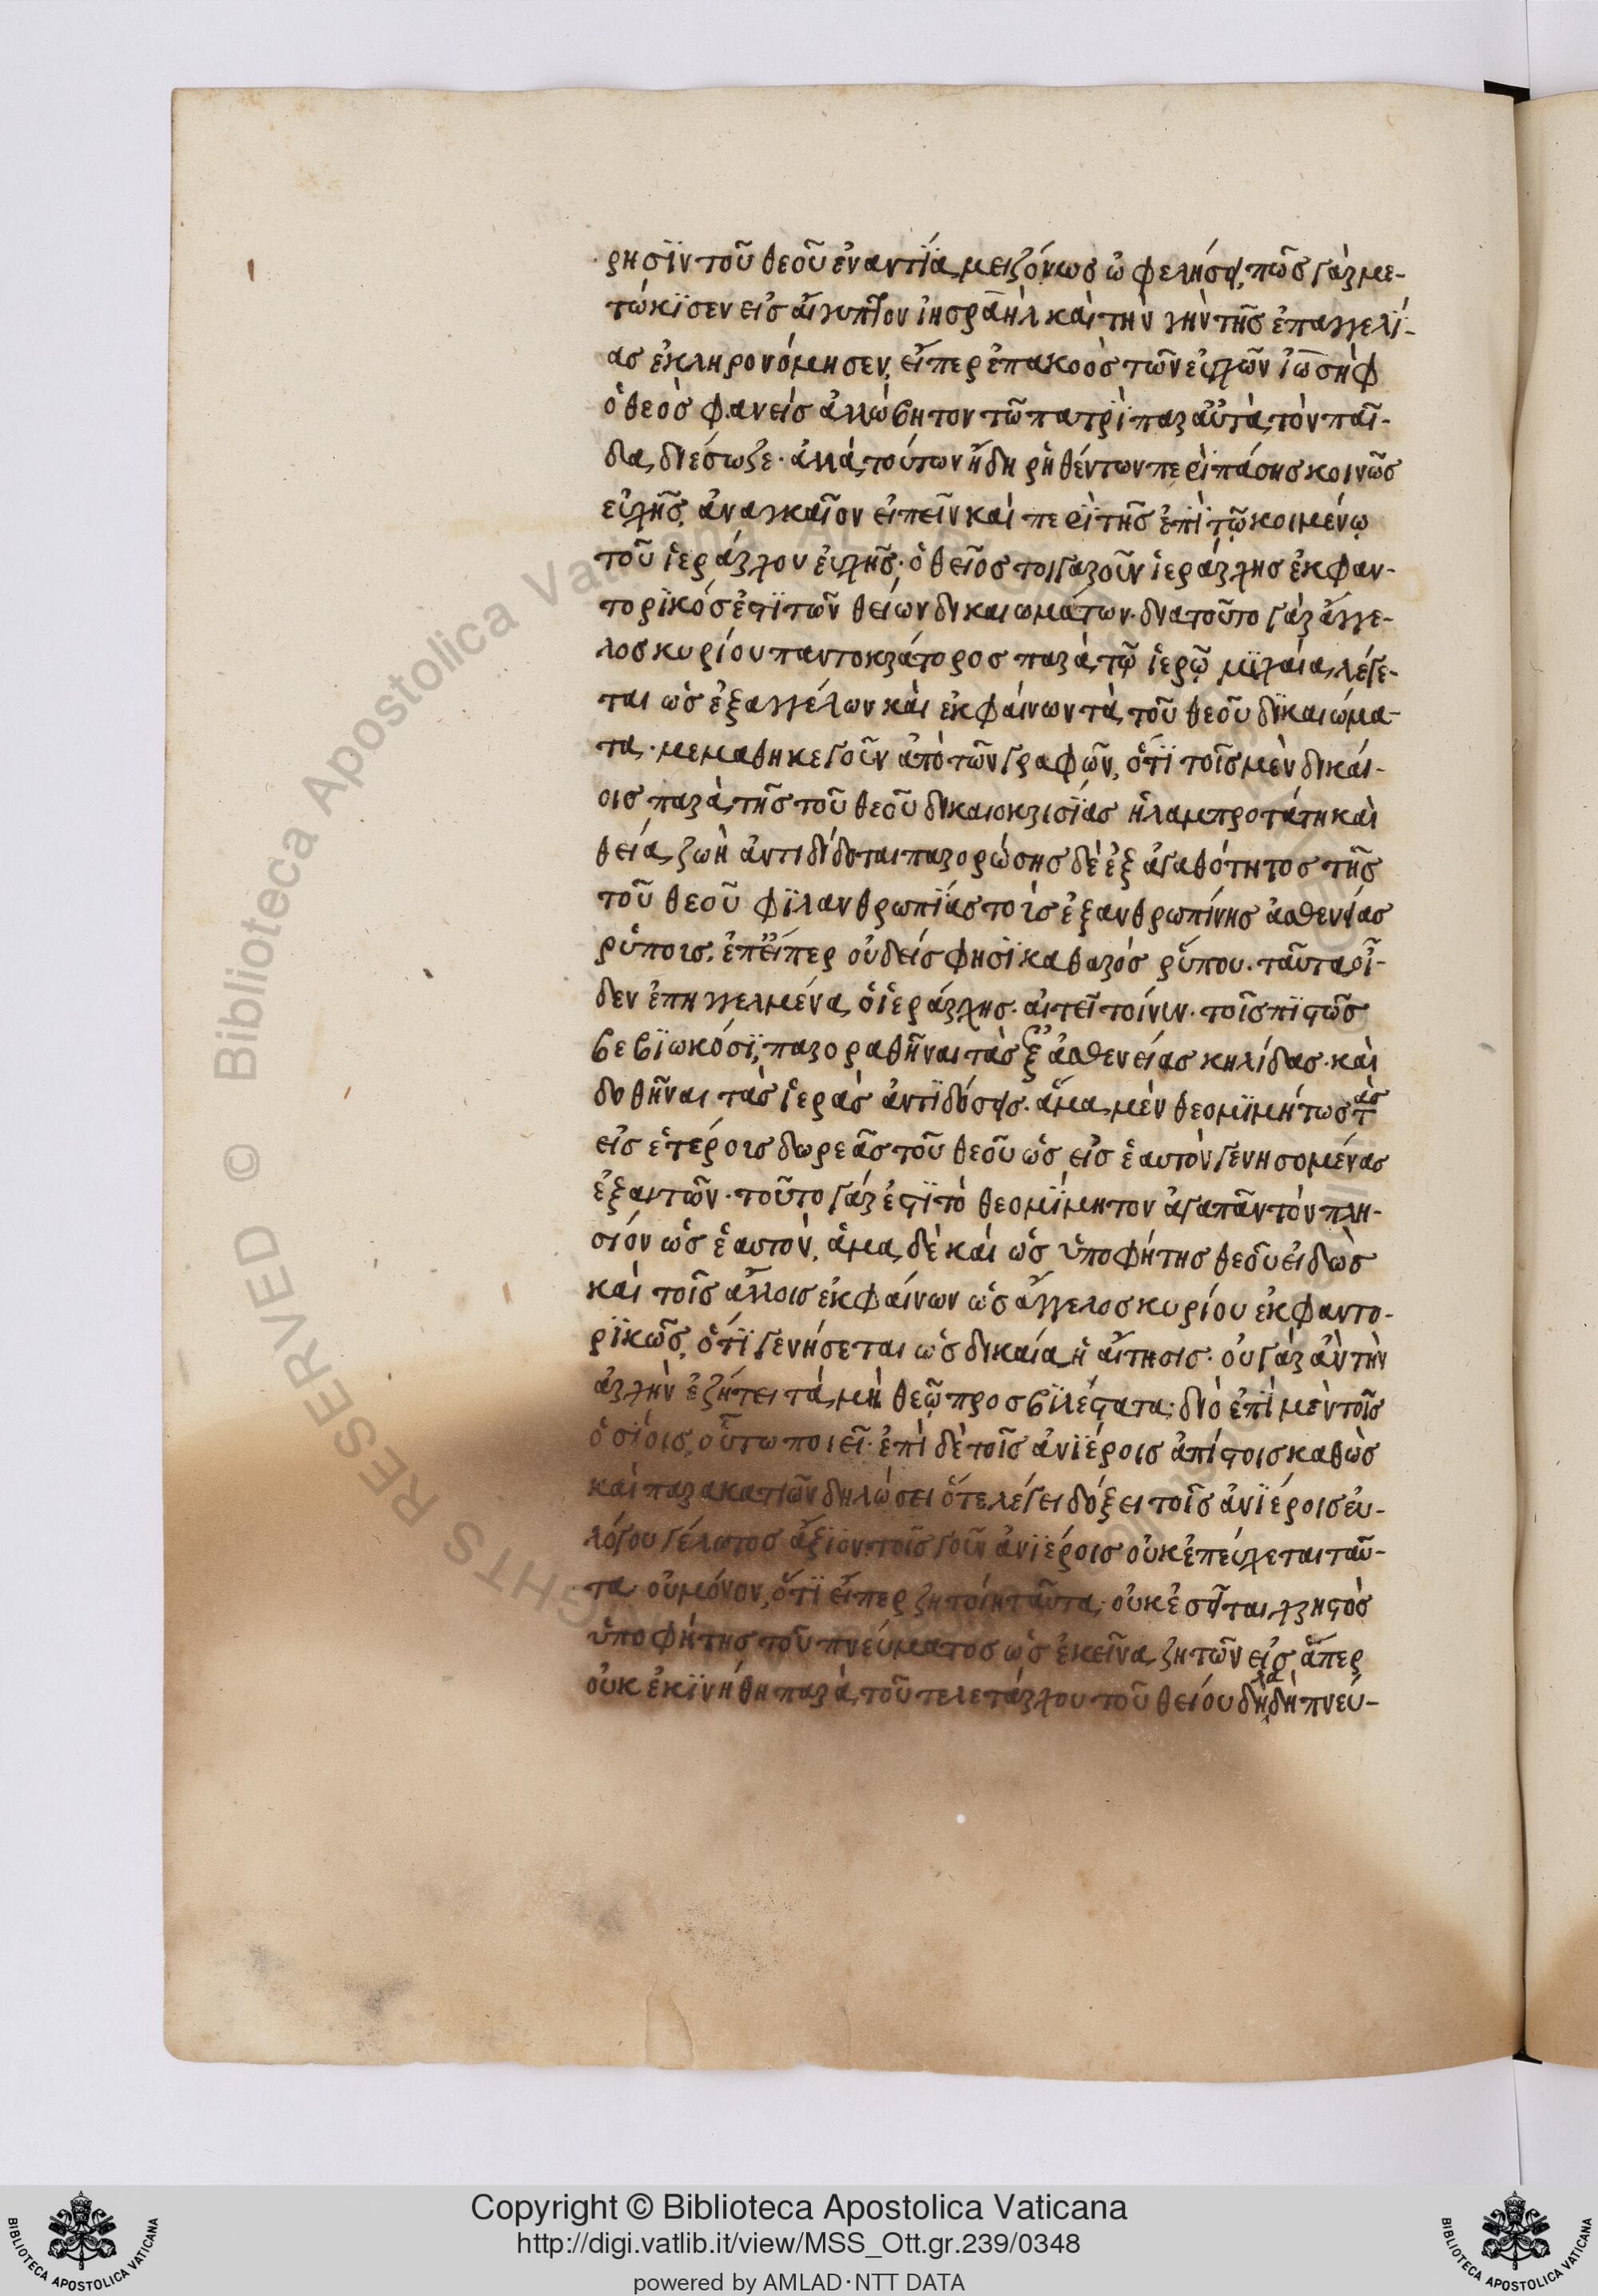 ρησϊν τοῦ θεοῦ ἐναντϊΐα, μειζόνως ὠφελήσει, πῶς γὰρ με-
τώκϊσεν εἰς αἴγυπτον ἰησραὴλ καὶ τὴν γὴν τῆς ἐπαγγελϊ-
ας ἐκληρονόμησεν, εἴπερ ἐπακοὸς τῶν εὐχῶν ἰωσὴφ
ὁ θεὸς φανεὶς ἀλώβητον τῶ πατρῒ παρ αὐτὰ, τὸν παῖ-
δα, διέσωζε· ἀλλὰ, τούτων ἤδη ῥηθέντων περῒ πάσης κοινῶς
εὐχῆς, ἀναγκαῖον εἰπεῖν καὶ περῒ τῆς ἐπῒ τῷ κοιμένῳ
τοῦ ἱεράρχου εὐχῆς· ὁ θεῖος τοιγαροῦν ἱεράρχης ἐκφαν-
τορϊκός ἐστϊ τῶν θείων δικαιωμάτων· διατοῦτο γὰρ ἄγγε-
λος κυρίου παντοκράτορος παρὰ, τῷ ἱερῷ μϊχαία, λέγε-
ται ὡς ἐξαγγέλων καὶ ἐκφαίνων τὰ, τοῦ θεοῦ δϊκαιώμα-
τα· μεμαθηκε γοῦν ἀπὸ τῶν γραφῶν, ὅτϊ τοῖς μὲν δικαί-
οις παρὰ, τῆς τοῦ θεοῦ δικαιοκρισϊας ἡ λαμπροτάτη καὶ
θεία, ζωὴ ἀντιδίδοται παρορώσης δὲ ἐξ ἀγαθότητος τῆς
τοῦ θεοῦ φϊλανθρωπϊας τοὶς ἐξ ανθρωπίνης ἀσθενείας
ῥύποις, ἐπείπερ οὐδείς φησϊ καθαρός ῥύπου· ταῦτα, οἶ-
δεν ἐπηγγελμένα, ὁ ἱεράρχης· αἰτεῖ τοίνυν· τοῖς πϊστῶς
βεβϊωκόσϊ, παροραθῆναι τὰς ἐξ ἀσθενείας κηλίδας· καὶ
δοθῆναι τὰς ἱερὰς ἀντϊδόσεις· ἅμα, μὲν θεομϊμήτως τὰς
εἰς ἑτέροις δωρεᾶς τοῦ θεοῦ ὡς εἰς ἑαυτὸν γενησομένας
ἐξαιτῶν· τοῦτο γάρ ἐστϊ τὸ θεομϊμητον ἀγαπᾶν τὸν πλη-
σιόν ὡς ἑαυτὸν, ἅμα, δὲ καὶ ὡς ὑποφήτης θεοῦ εἰδὼς
καὶ τοῖς ἄλλοις ἐκφαίνων ὡς ἄγγελος κυρίου ἐκφαντο-
ρϊκῶς, ὅτϊ γενήσεται ὡς δικαία, ἡ αἴτησις· οὐ γὰρ ἂν τὴν
ἀρχὴν ἐζήτει τὰ, μὴ θεῷ προσβϊλέστατα· διὸ ἐπῒ μὲν τοῖς
ὁσίοις, οὕτω ποιεῖ· ἐπὶ δὲ τοῖς ἀνϊέροις ἀπίστοις καθὼς
καὶ παρακατιὼν δηλώσει ὅτε λέγει δόξει τοῖς ἀνϊέροις εὐ-
λόγου γέλωτος ἄξϊον· τοῖς γοῦν ἀνϊέροις οὐκ ἐπεύχεται ταῦ-
τα οὐ μόνον, ὅτϊ εἴπερ ζητοίη ταῦτα, οὐκ ἐσεῖται χρηστὸς
ὑποφήτης τοῦ πνεύματος ὡς ἐκεῖνα, ζητῶν εἰς ἅπερ
οὐκ ἐκϊνήθη παρὰ, τοῦ τελετάρχου τοῦ θείου δηλαδὴ πνεύ-
Copyright © Biblioteca Apostolica Vaticana
http://digi.vatlib.it/view/MSS_Ott.gr.239/0348
powered by AMLAD·NTT DATA